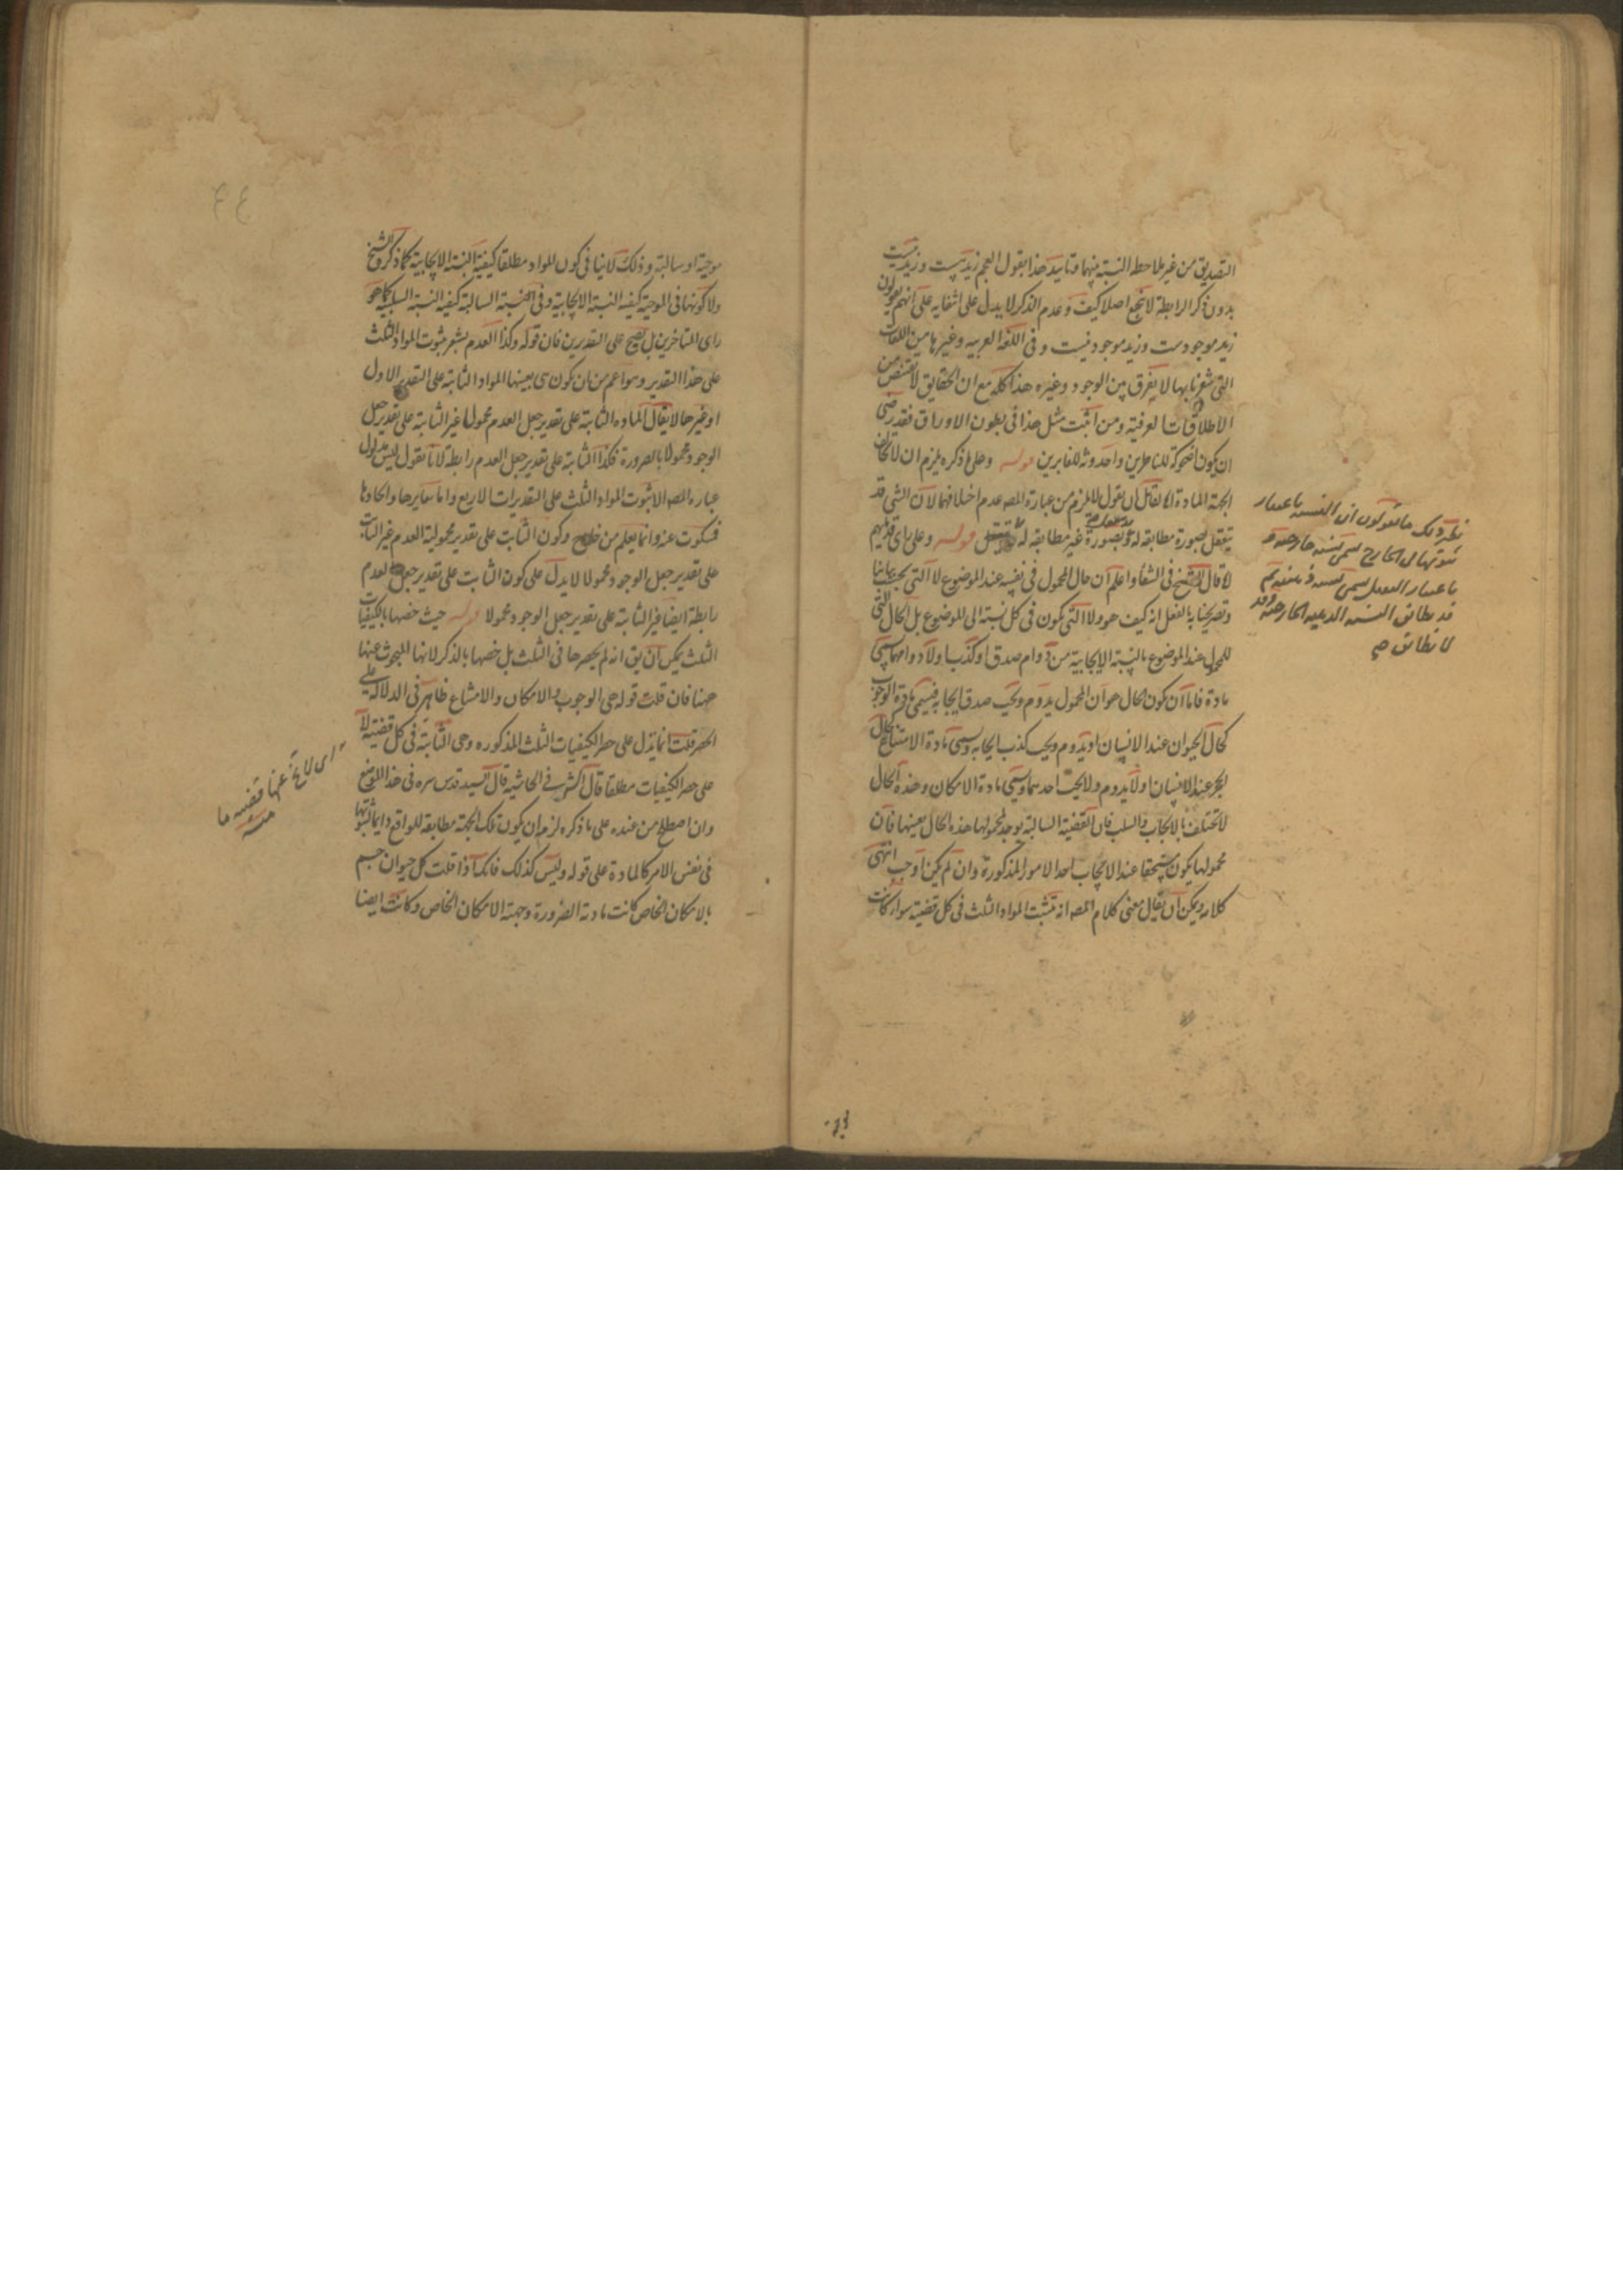 التصديق من غير ملاحظة النسبة بينهما وتاييد هذا بقول العجم زيد هست وزيد نيست
بدون ذكر الرابطة لا ينجع اصلا كيف وعدم الذكر لا يدل على انتفايه على انهم يقولون
زيد موجودست وزيد موجود نيست وفى اللغة العربيه وغيرها من اللغات
التى شعرنا بها لا يفرق بين الوجود وغيره هذا كله مع ان الحقايق لا تقتنص من
الاطلاقات العرفيه ومن اثبت مثل هذا فى بطون الاوراق فقد رضى
ان يكون اضحوكة للناظرين واحدوثه للغابرين قوله وعلى ما ذكره يلزم ان لا تخالف
الجهة المادة لقائل ان يقول لا يلزم من عبارة المصه عدم اختلافهما لان الشى قد
يتعقل بصورة مطابقه له وبصورة غير مطابقه له قوله وعلى راى قدمائهم
لا قال الشيخ فى الشفا واعلم ان حال المحمول فى نفسه عند الموضوع لا التى بحسب بياننا
وتصريحنا به بالفعل انه كيف هو ولا التى يكون فى كل نسبة الى الموضوع بل الحال التى
للمحمول عند الموضوع بالنسبة الايجابية من دوام صدق او كذب او لا دوامهما يسمى
مادة فاما ان يكون الحال هو ان المحمول يدوم ويجب صدق ايجابه فيسمى مادة الوجوب
كحال الحيوان عند الانسان او يدوم ويجب كذب ايجابه ويسمى مادة الامتناع كحال
الحجر عند الانسان او لا يدوم ولا يجب احدهما ويسمى مادة الامكان وهذه الحال
لا تختلف بالايجاب والسلب فان القضية السالبة يوجد لمحمولها هذه الحال بعينها فان
محمولها يكون مستحقا عند الايجاب احد الامور المذكورة وان لم يكن اوجب انتهى
كلامه ويمكن ان يقال معنى كلام المصه انه تثبت المواد الثلث فى كل قضية سواء كانت
نظير ذلك ما يقولون ان النسبه باعتبار
ثبوتها فى الخارج تسمى نسبه خارجيه و
باعتبار التعقل تسمى نسبه ذهنيه ثم
قد يطابق النسبه الذهنيه الخارجيه وقد
لا يطابق
موجبة او سالبة وذلك لا ينافى كون المواد مطلقا كيفية النسبة الايجابية كما ذكره الشيخ
ولا كونها فى الموجبة كيفية النسبة الايجابية وفى السالبة كيفية النسبة السلبية كما هو
راى المتاخرين بل يصح على التقديرين فان قوله وكذا العدم يشعر بثبوت المواد الثلث
على هذا التقدير وهو اعم من ان يكون هى بعينها المواد الثابتة على التقدير الاول
او غيرها لا يقال الماده الثابتة على تقدير جعل العدم محمولا غير الثابتة على تقدير جعل
الوجود محمولا بالضرورة فكذا الثابتة على تقدير جعل العدم رابطة لانا نقول ليس مدلول
عبارة المصه الا ثبوت المواد الثلث على التقديرات الاربع واما تغايرها واتحادها
فسكوت عنه وانما يعلم من خارج وكون الثابت على تقدير محمولية العدم غير الثابت
على تقدير جعل الوجود محمولا لا يدل على كون الثابت على تقدير جعل العدم
رابطة ايضا غير الثابتة على تقدير جعل الوجود محمولا قوله حيث خصها بالكيفيات
الثلث يمكن ان يق انه لم يحصرها فى الثلث بل خصها بالذكر لانها المبحوث عنها
ههنا فان قلت قوله هى الوجوب والامكان والامتناع ظاهر فى الدلالة على
الحصر قلت انما يدل على حصر الكيفيات الثلث المذكوره وهى الثابتة فى كل قضية لا
على حصر الكيفيات مطلقا قال الشريف فى الحاشية قال السيد قدس سره فى هذا الموضع
وان اصطلح من عنده على ما ذكره لزم ان يكون تلك الجهة مطابقة للواقع دايما لثبوتها
فى نفس الامر كالمادة على قوله وليس كذلك فانك اذا قلت كل حيوان جسم
بالامكان الخاص كانت مادته الضرورة وجهته الامكان الخاص وكانت ايضا
اى لا يخ عنها قضيه ما
منه